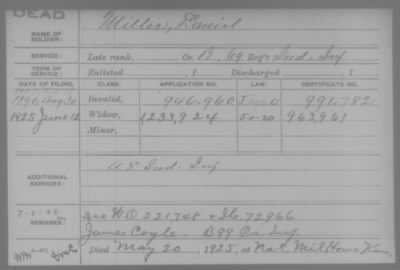 DEAD
NAME OF SOLDIER: Miller, Daniel
SERVICE: Late rank, Co. B, 49 Reg't Ind. Inf
TERM OF SERVICE: Enlisted , 1 Discharged , 1
DATE OF FILING. CLASS. APPLICATION NO. LAW. CERTIFICATE NO.
1890, Aug 30 Invalid, 946,960 991,782
1925 June 12 Widow, 1,233,924 5-1-20 963,961
Minor,
ADDITIONAL SERVICES: Ind. Inf
REMARKS: See W.O. 221,748 + 72,866
James Coyle - B 99 Pa Inf
Died May 20, 1925, at Nat. Mil Home, Kans.